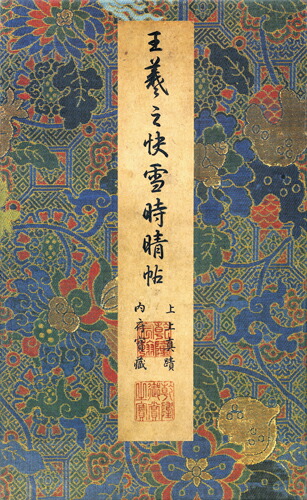 王羲之快雪時晴帖
上上真蹟
内府寶藏